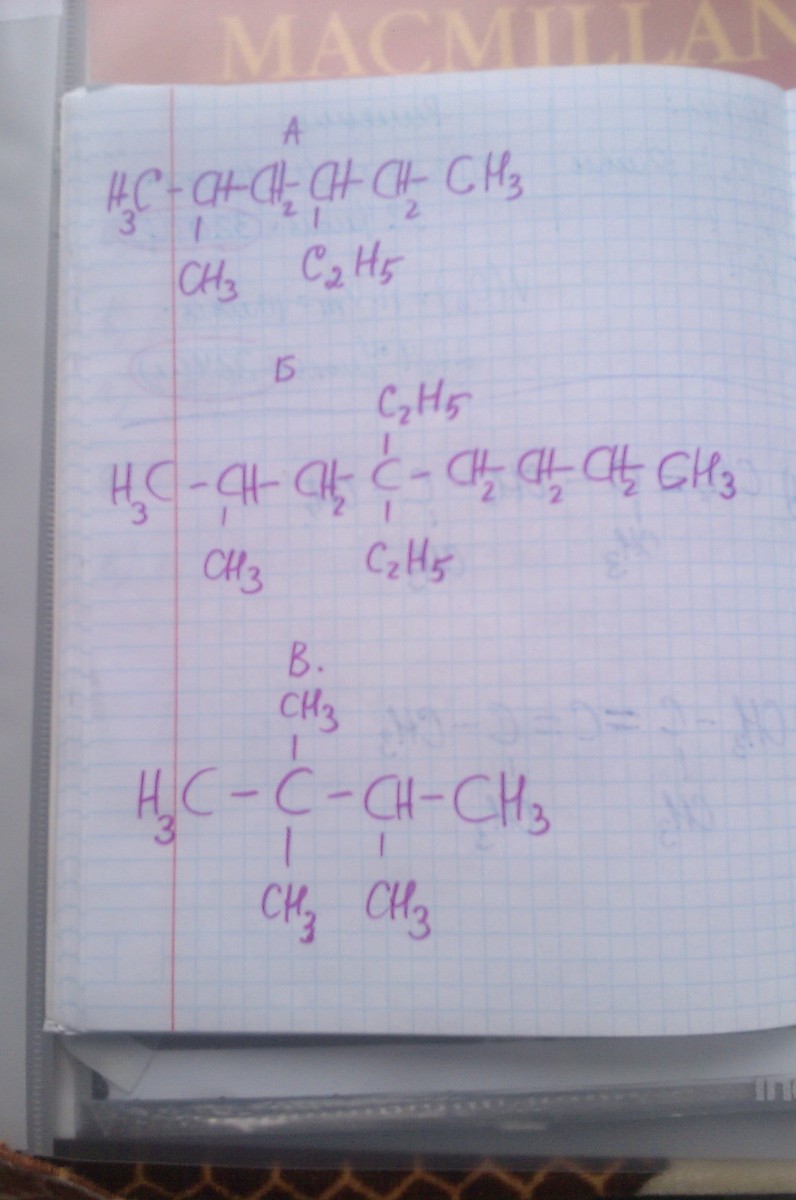 MACMILLAN
А
H3C-CH-CH2-CH-CH2-CH3
CH3 C2H5
Б
C2H5
H3C-CH-CH2-C-CH2-CH2-CH2-CH3
CH3 C2H5
В.
CH3
H3C-C-CH-CH3
CH3 CH3